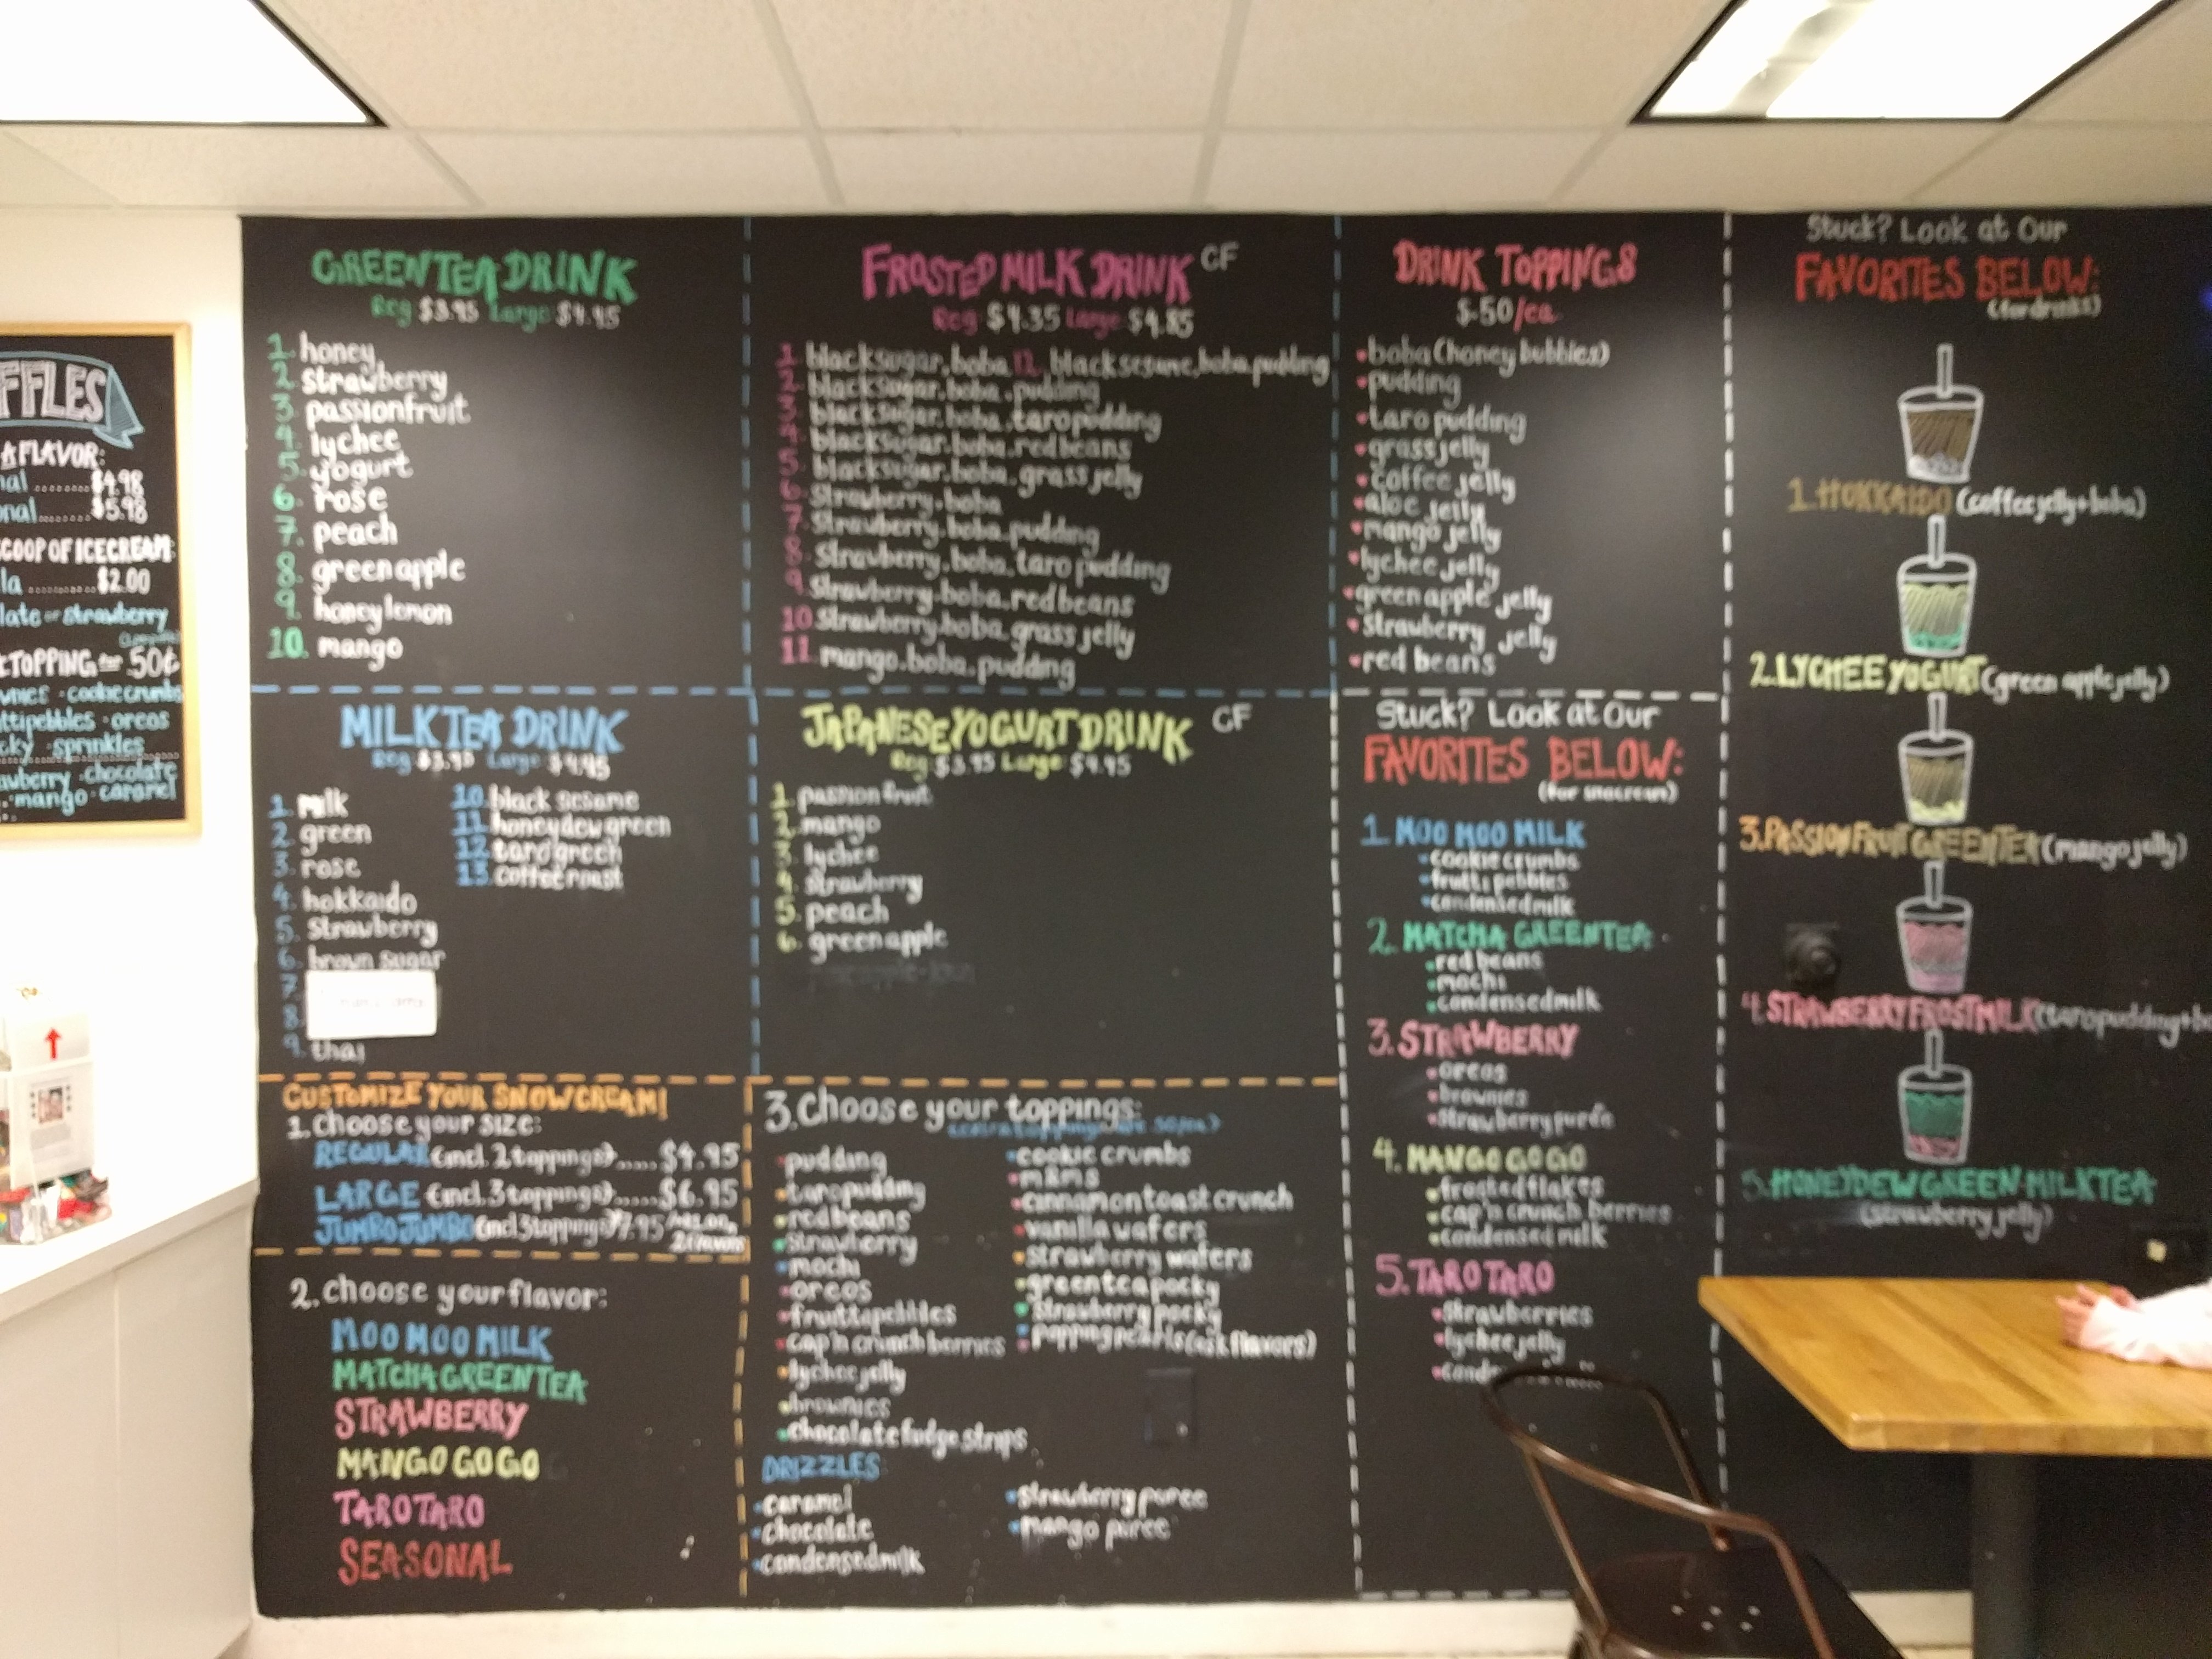 FFLES
A FLAVOR:
nal ........ $4.98
onal ........ $5.98
SCOOP OF ICECREAM:
la ........... $2.00
late or strawberry
TOPPING for 50¢
wnies · cookie crumbs
ttipebbles · oreos
cky · sprinkles
awberry · chocolate
mango · caramel
GREEN TEA DRINK
Reg $3.95 Large $4.45
1. honey
2. strawberry
3. passionfruit
4. lychee
5. yogurt
6. rose
7. peach
8. green apple
9. honey lemon
10. mango
MILK TEA DRINK
Reg $3.95 Large $4.45
1. milk
2. green
3. rose
4. hokkaido
5. Strawberry
6. brown sugar
7.
8.
9. thai
10. black sesame
11. honeydew green
12. taro green
13. coffee roast
CUSTOMIZE YOUR SNOWCREAM!
1. Choose your size:
REGULAR (incl. 2 toppings)..... $4.95
LARGE (incl. 3 toppings)...... $6.95
JUMBO JUMBO (incl 3 toppings) $7.95
2 flavors
2. choose your flavor:
MOO MOO MILK
MATCHA GREEN TEA
STRAWBERRY
MANGO GO GO
TARO TARO
SEASONAL
FROSTED MILK DRINK CF
Reg $4.35 Large $4.85
1. black sugar. boba 12. black sesame, boba pudding
2. black sugar. boba. pudding
3. black sugar. boba. taro pudding
4. black sugar. boba. red beans
5. black sugar. boba. grass jelly
6. Strawberry. boba
7. Strawberry. boba. pudding
8. Strawberry. boba. taro pudding
9. Strawberry. boba. red beans
10. Strawberry. boba. grass jelly
11. mango. boba. pudding
JAPANESE YOGURT DRINK CF
Reg $3.95 Large $4.45
1. passion fruit
2. mango
3. lychee
4. strawberry
5. peach
6. green apple
3. Choose your toppings:
(extra toppings are .50/ea)
• pudding
• taro pudding
• red beans
• strawberry
• mochi
• oreos
• fruitti pebbles
• cap'n crunch berries
• lychee jelly
• brownies
• chocolate fudge strips
• cookie crumbs
• m&ms
• cinnamon toast crunch
• vanilla wafers
• strawberry wafers
• green tea pocky
• strawberry pocky
• popping pearls (ask flavors)
DRIZZLES:
• caramel
• chocolate
• condensed milk
• strawberry puree
• mango puree
DRINK TOPPINGS
$.50/ea
• boba (honey bubbles)
• pudding
• taro pudding
• grass jelly
• coffee jelly
• aloe jelly
• mango jelly
• lychee jelly
• green apple jelly
• Strawberry jelly
• red beans
Stuck? Look at Our
FAVORITES BELOW:
(for snocream)
1. MOO MOO MILK
• cookie crumbs
• frutti pebbles
• condensed milk
2. MATCHA GREEN TEA
• red beans
• mochi
• condensed milk
3. STRAWBERRY
• oreos
• brownies
• strawberry purée
4. MANGO GO GO
• frosted flakes
• cap'n crunch berries
• condensed milk
5. TARO TARO
• strawberries
• lychee jelly
• conde
Stuck? Look at Our
FAVORITES BELOW:
(for drinks)
1. HOKKAIDO (coffee jelly + boba)
2. LYCHEE YOGURT (green apple jelly)
3. PASSION FRUIT GREEN TEA (mango jelly)
4. STRAWBERRY FROST MILK (taro pudding + b
5. HONEYDEW GREEN MILK TEA
(strawberry jelly)